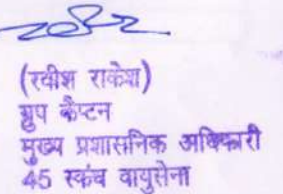 (रवीश राकेश)
ग्रुप कैप्टन
मुख्य प्रशासनिक अधिकारी
45 स्कंध वायुसेना